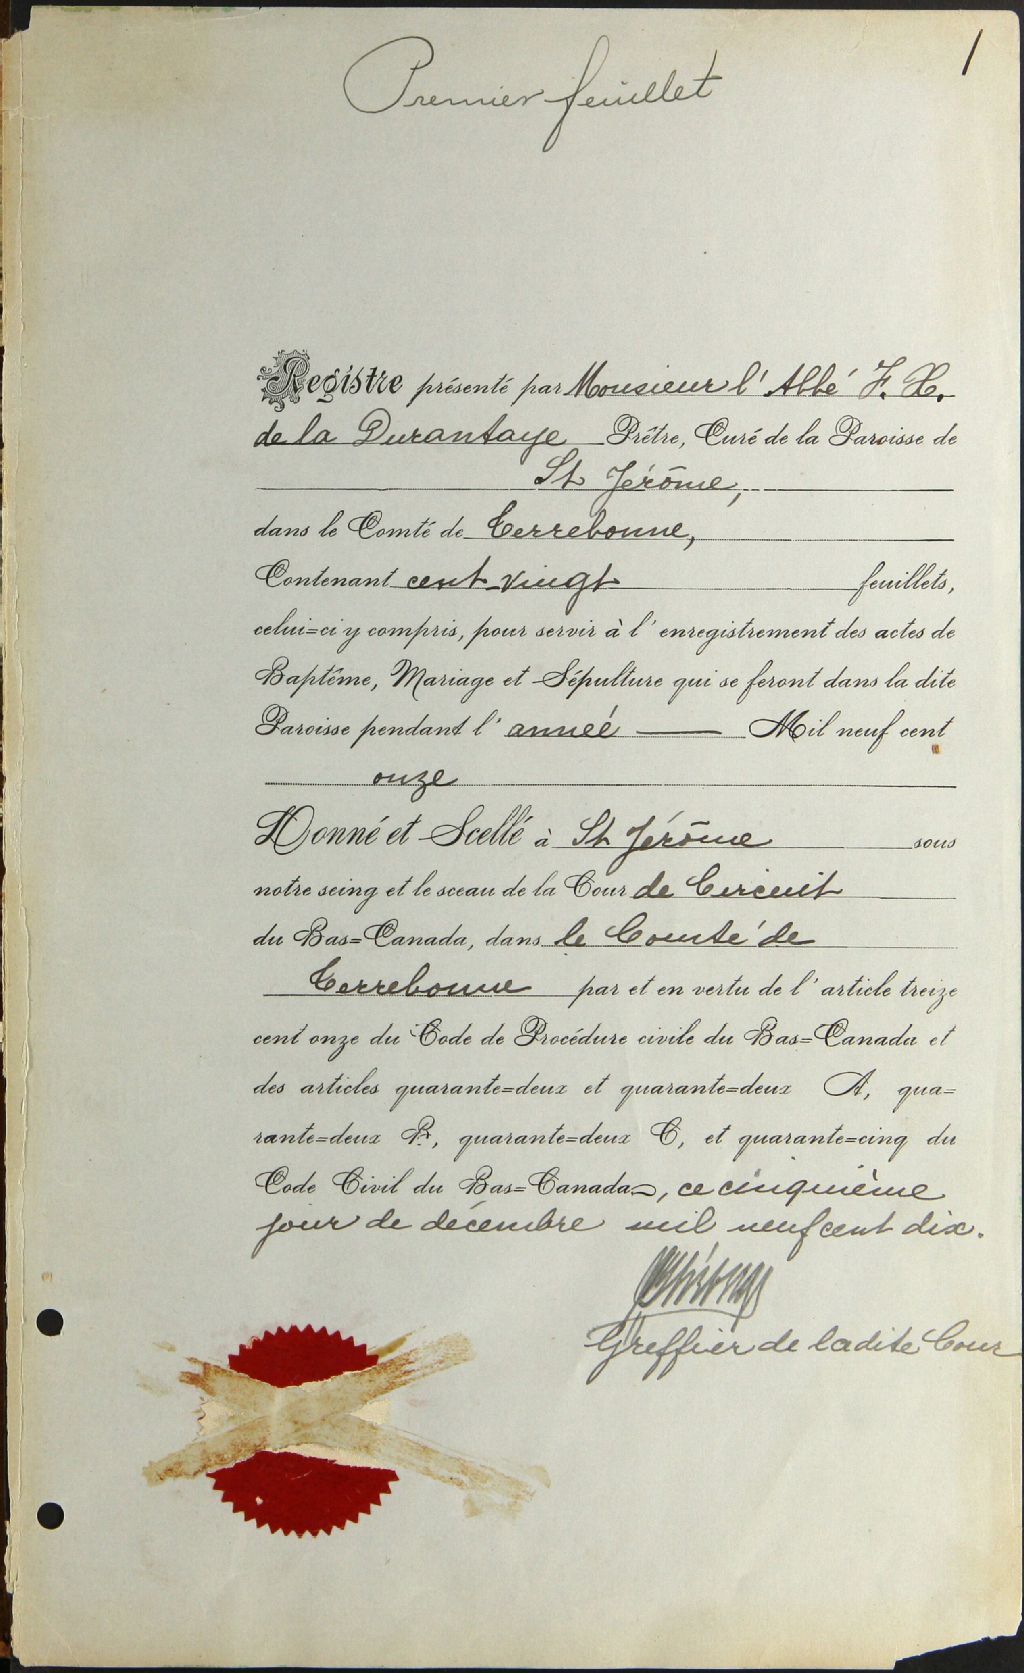 1
Premier feuillet
Registre présenté par Monsieur l'Abbé F. X.
de la Durantaye Prêtre, Curé de la Paroisse de
St Jérôme,
dans le Comté de Terrebonne,
Contenant cent-vingt feuillets,
celui=ci y compris, pour servir à l'enregistrement des actes de
Baptême, Mariage et Sépulture qui se feront dans la dite
Paroisse pendant l'année — Mil neuf cent
onze
Donné et Scellé à St Jérôme sous
notre seing et le sceau de la Cour de Circuit
du Bas=Canada, dans le Comté de
Terrebonne par et en vertu de l'article treize
cent onze du Code de Procédure civile du Bas=Canada et
des articles quarante=deux et quarante=deux A, qua=
rante=deux B, quarante=deux C, et quarante=cinq du
Code Civil du Bas=Canada, ce cinquième
jour de décembre mil neuf cent dix.
Greffier de ladite Cour